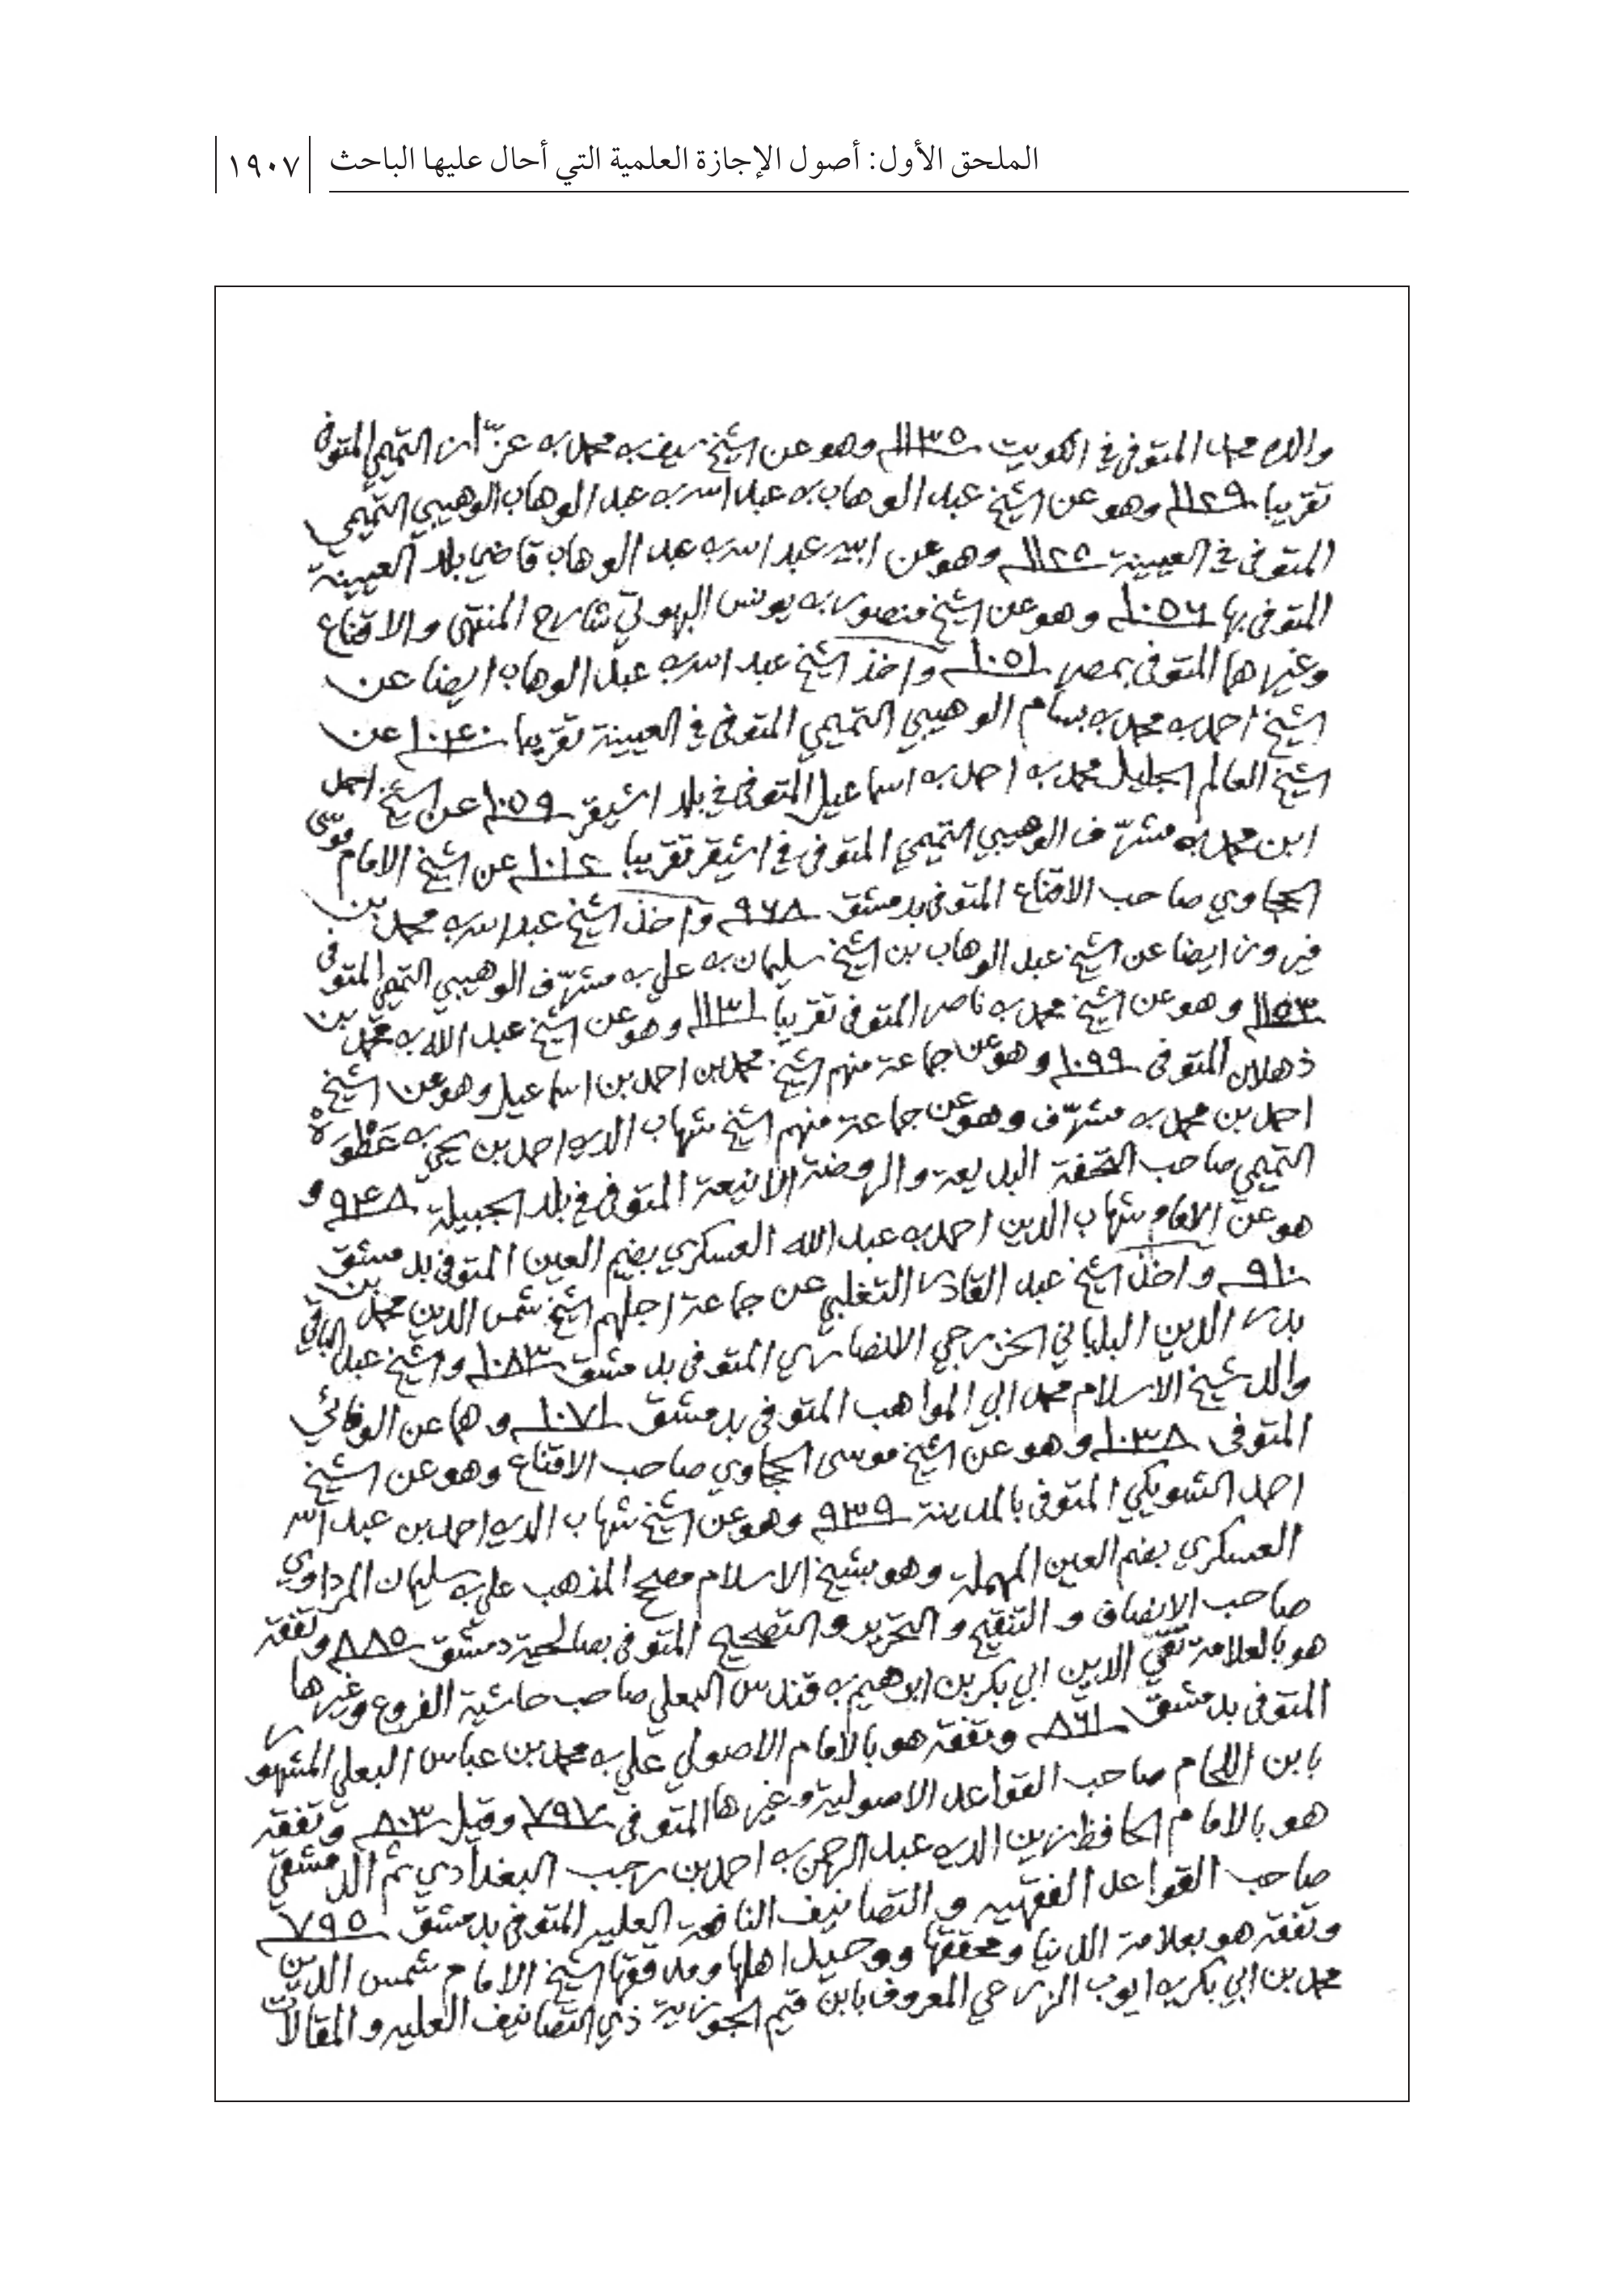 الملحق الأول: أصول الإجازة العلمية التي أحال عليها الباحث ١٩٠٧
والده محمد المتوفى في الكويت ١١٣٥ وهو عن الشيخ سيف به محمد به عزّاز التميمي المتوفى
تقريبا ١١٢٩ وهو عن الشيخ عبد الوهاب به عبد الله به عبد الوهاب الوهيبي التميمي
المتوفى في العيينة ١١٢٥ وهو عن ابيه عبد الله به عبد الوهاب قاضي بلد العيينة
المتوفى بها ١٠٥٦ وهو عن الشيخ منصور به يونس البهوتي شارح المنتهى والاقناع
وغيرهما المتوفى بمصر ١٠٥١ واخذ الشيخ عبد الله به عبد الوهاب ايضا عن
الشيخ احمد به محمد به بسام الوهيبي التميمي المتوفى في العيينة تقريبا ١٠٤٠ عن
الشيخ العالم الجليل محمد به احمد به اسماعيل المتوفى في بلد اشيقر ١٠٥٩ عن الشيخ احمد
ابن محمد به مشرّف الوهيبي التميمي المتوفى في اشيقر تقريبا ١٠١٢ عن الشيخ الامام موسى
الحجاوي صاحب الاقناع المتوفى بدمشق ٩٦٨ واخذ الشيخ عبد الله به محمد بن
فيروز ايضا عن الشيخ عبد الوهاب بن الشيخ سليمان به علي به مشرّف الوهيبي التميمي المتوفى
١١٥٣ وهو عن الشيخ محمد به ناصر المتوفى تقريبا ١١٣١ وهو عن الشيخ عبد الله به محمد بن
ذهلان المتوفى ١٠٩٩ وهو عن جماعة منهم الشيخ محمد بن احمد بن اسماعيل وهو عن الشيخ
احمد بن محمد به مشرّف وهو عن جماعة منهم الشيخ شهاب الديه احمد بن يحيى به عَطْوَة
التميمي صاحب التحفة البديعة والروضة الانيعة المتوفى في بلد الجبيلة ٩٤٨ و
هو عن الامام شهاب الدين احمد به عبد الله العسكري بضم العين المتوفى بدمشق
٩١٠ واخذ الشيخ عبد القادر التغلبي عن جماعة اجلهم الشيخ شمس الدين محمد بن
بدر الدين البلباني الخزرجي الانصاري المتوفى بدمشق ١٠٨٣ والشيخ عبد الباقي
والد شيخ الاسلام محمد ابي المواهب المتوفى بدمشق ١٠٧١ وهما عن الوفائي
المتوفى ١٠٣٨ وهو عن الشيخ موسى الحجاوي صاحب الاقناع وهو عن الشيخ
احمد الشويكي المتوفى بالمدينة ٩٣٩ وهو عن الشيخ شهاب الديه احمد بن عبد الله
العسكري بضم العين المهملة وهو بشيخ الاسلام مصحح المذهب علي به سليمان المرداوي
صاحب الانصاف والتنقيح والتحرير والتصحيح المتوفى بصالحية دمشق ٨٨٥ وتفقه
هو بالعلامة تقيّ الدين ابي بكر بن ابرهيم به قندس البعلي صاحب حاشية الفروع وغيرها
المتوفى بدمشق ٨٦١ وتفقه هو بالامام الاصولي علي به محمد بن عباس البعلي المشهور
بابن اللحام صاحب القواعد الاصولية وغيرها المتوفى ٧٩٧ وقيل ٨٠٣ وتفقه
هو بالامام الحافظ زين الديه عبد الرحمن به احمد بن رجب البغدادي ثم الدمشقي
صاحب القواعد الفقهيه والتصانيف النافعة العليه المتوفى بدمشق ٧٩٥
وتفقه هو بعلامة الدنيا ومحققها ووحيد اهلها ومدققها الشيخ الامام شمس الدين
محمد بن ابي بكر به ايوب الزرعي المعروف بابن قيم الجوزية ذي التصانيف العليه والمقالات